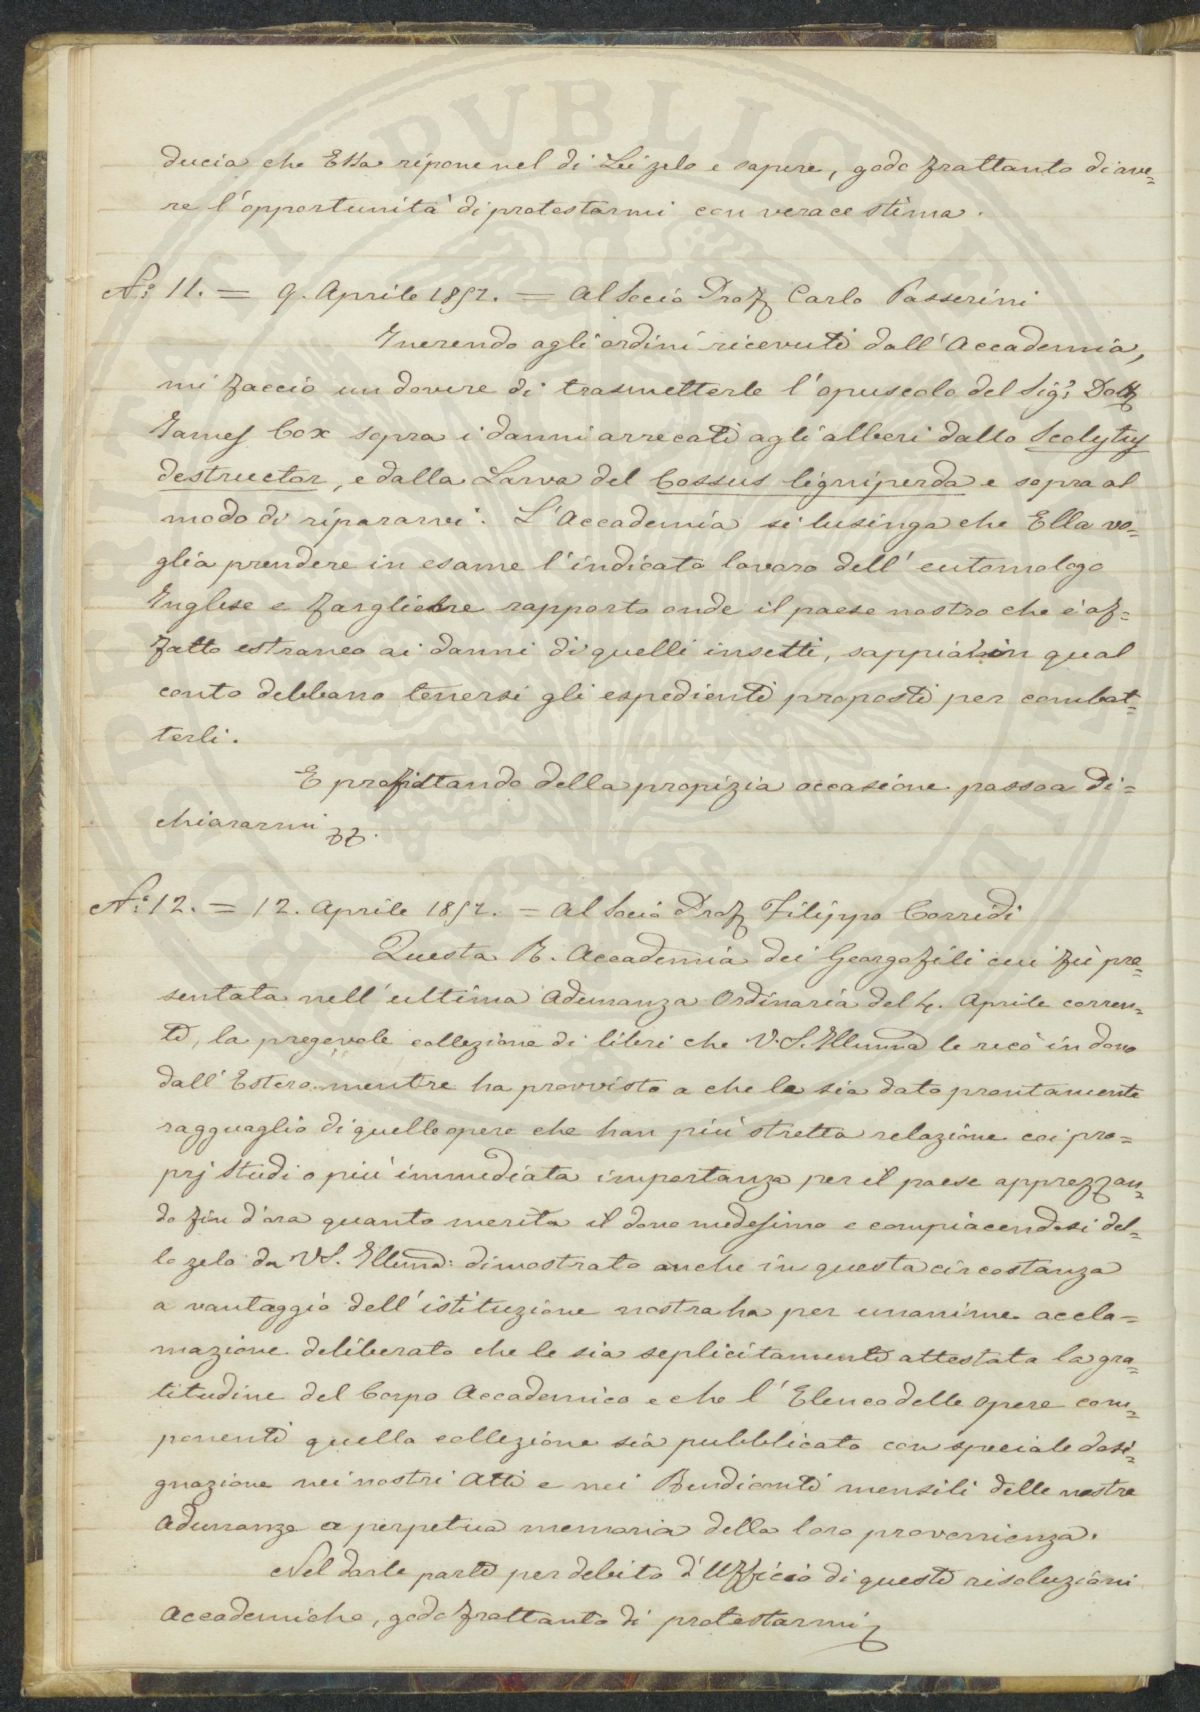 ducia che Essa ripone nel di Lei zelo e sapere, godo frattanto di ave=
re l'opportunità di protestarmi con verace stima.
N.° 11. = 9. Aprile 1852. = Al Socio Prof Carlo Passerini
Inerendo agli ordini ricevuti dall'Accademia,
mi faccio un dovere di trasmetterle l'opuscolo del Sig.r Dott
James Cox sopra i danni arrecati agli alberi dallo Scolytus
destructor, e dalla Larva del Cossus ligniperda e sopra al
modo di ripararvi. L'Accademia si lusinga che Ella vo=
glia prendere in esame l'indicato lavoro dell'entomologo
Inglese e fargliene rapporto onde il paese nostro che è af=
fatto estraneo ai danni di quelli insetti, sappia in qual
conto debbano tenersi gli espedienti proposti per combat=
terli.
E profittando della propizia occasione passo a di=
chiararmi
N.° 12. = 12. Aprile 1852. = Al Socio Prof Filippo Corridi
Questa R. Accademia dei Georgofili cui fù pre=
sentata nell'ultima Adunanza Ordinaria del 4. Aprile corren=
te, la pregevole collezione di libri che V.S. Illuma le recò in dono
dall'Estero mentre ha provvisto a che le sia dato prontamente
ragguaglio di quelle opere che han più stretta relazione coi pro=
prj Studi o più immediata importanza per il paese apprezzan=
do fin d'ora quanto merita il dono medesimo e compiacendosi del=
lo zelo da VS. Illuma: dimostrato anche in questa circostanza
a vantaggio dell'istituzione nostra ha per unanime accla=
mazione deliberato che le sia seplicitamente attestata la gra=
titudine del Corpo Accademico e che l'Elenco delle opere com=
ponenti quella collezione sia pubblicato con speciale desi=
gnazione nei nostri Atti e nei Rendiconti mensili delle nostre
Adunanze a perpetua memoria della loro provenienza.
Nel darle parte per debito d'Ufficio di queste risoluzioni
Accademiche, godo frattanto di protestarmi